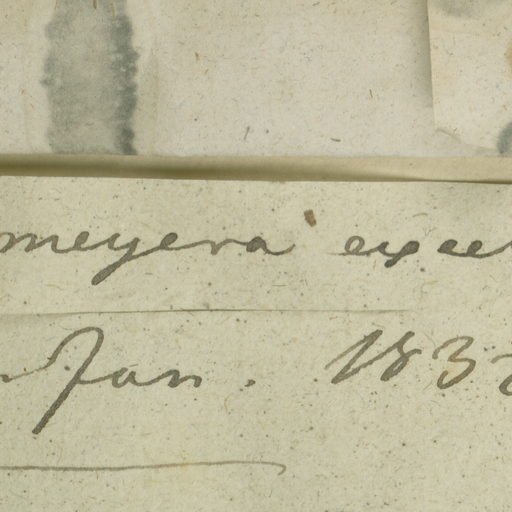 meyera excel
Jan. 183